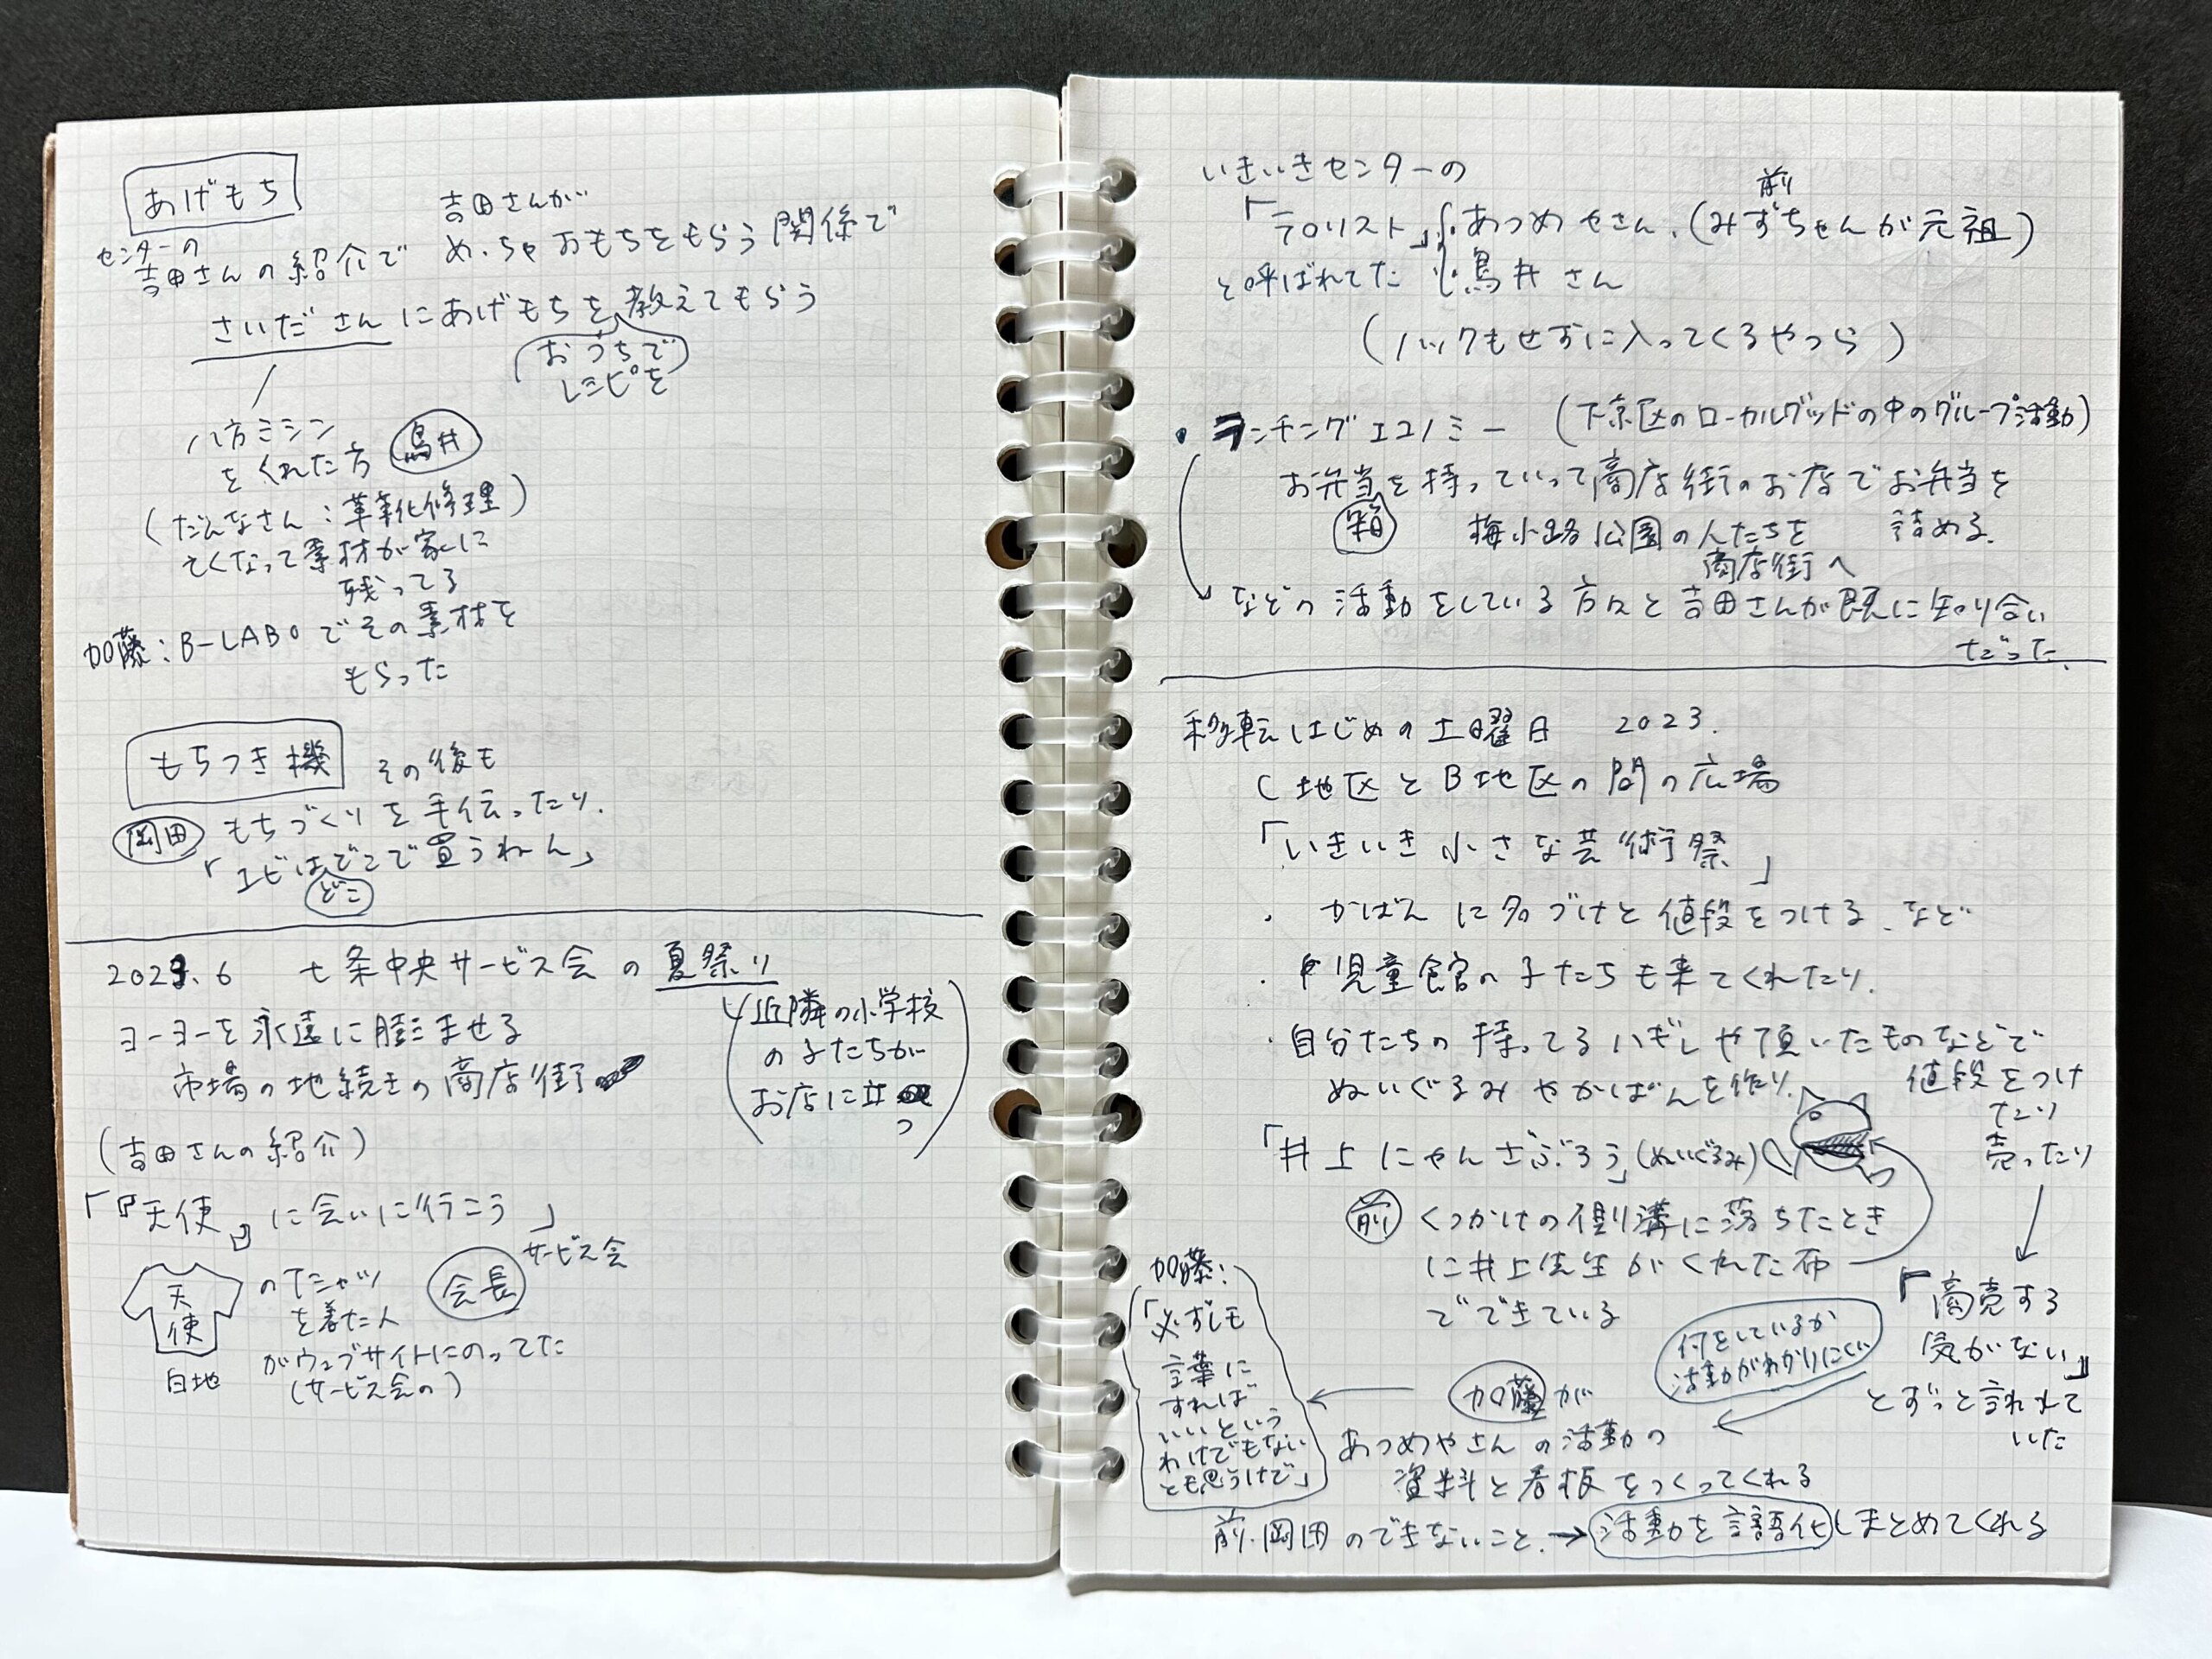 あげもち
センターの
吉田さんの紹介で
吉田さんが
めっちゃおもちをもらう関係で
さいださんにあげもちを教えてもらう
おうちで
レシピを
八方ミシン
をくれた方 鳥井
(だんなさん:革靴修理)
亡くなって素材が家に
残ってる
加藤:B-LABOでその素材を
もらった
もちつき機 その後も
岡田 もちづくりを手伝ったり、
「エビはどこで買うねん」
どこ
2023.6 七条中央サービス会の夏祭り
ヨーヨーを永遠に膨ませる
市場の地続きの商店街
(近隣の小学校
の子たちが
お店に立つ)
(吉田さんの紹介)
「『天使』に会いに行こう」
サービス会
会長
天使
白地
のTシャツ
を着た人
がウェブサイトにのってた
(サービス会の)
いきいきセンターの
「テロリスト」 あつめやさん、(みずちゃんが元祖)
前
と呼ばれてた 鳥井さん
(ノックもせずに入ってくるやつら)
・ランチングエコノミー (下京区のローカルグッドの中のグループ活動)
お弁当を持っていって商店街のお店でお弁当を
箱
詰める。
梅小路公園の人たちを
商店街へ
などの活動をしている方々と吉田さんが既に知り合い
だった。
移転はじめの土曜日 2023.
C地区とB地区の間の広場
「いきいき小さな芸術祭」
・かばんに名づけと値段をつける、など
・児童館の子たちも来てくれたり、
・自分たちの持ってるハギレや頂いたものなどで
ぬいぐるみやかばんを作り、
値段をつけ
たり
売ったり
「井上にゃんざぶろう」(ぬいぐるみ)
前 くつかけの側溝に落ちたとき
に井上先生がくれた布
でできている
「商売する
気がない」
とずっと言われて
いた
何をしているか
活動がわかりにくい
加藤が
あつめやさんの活動の
資料と看板をつくってくれる
加藤:
「必ずしも
言葉に
すれば
いいという
わけでもない
とも思うけど」
前・岡田のできないこと、→活動を言語化しまとめてくれる